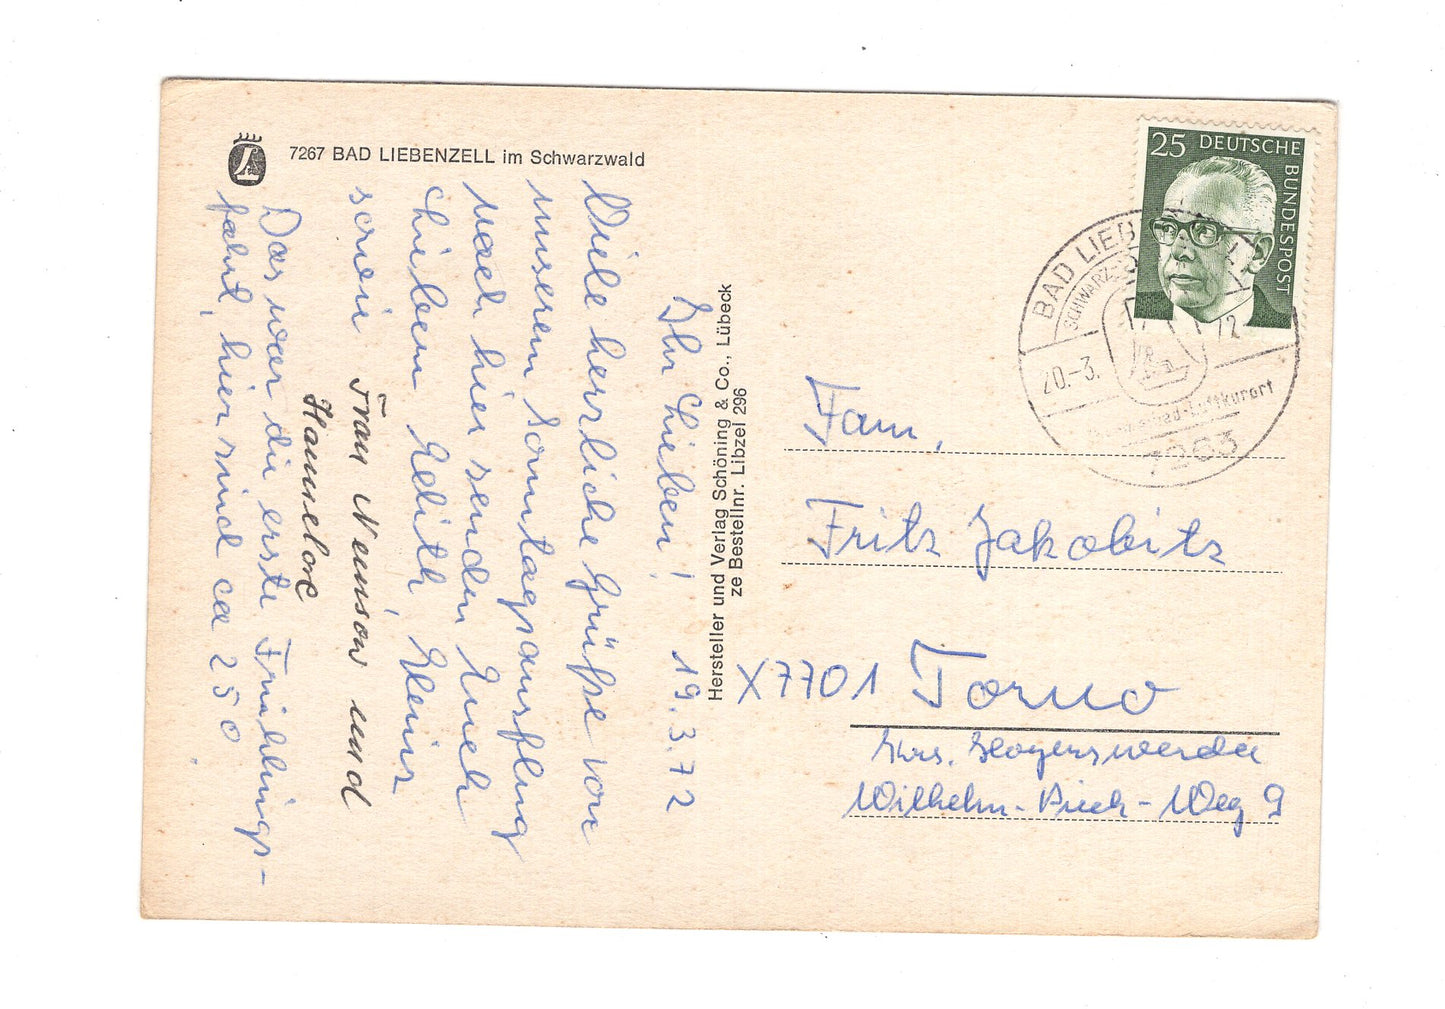 7267 BAD LIEBENZELL im Schwarzwald
Ihr Lieben! 19.3.72
Viele herrliche Grüße von
unserem Sonntagsausflug
nach hier senden Euch
Lieben Edith, Heinz
sowie Frau Neinsow und
Hannelore
Das war die erste Frühlings-
fahrt, hier sind ca 25 0.
Hersteller und Verlag Schöning & Co., Lübeck
ze Bestellnr. Libzel 296
25 DEUTSCHE
BUNDESPOST
BAD LIEB
SCHWARZ
20.-3. 72
Luftkurort
7263
Fam.
Fritz Jakobitz
X7701 Torno
Krs. Hoyerswerda
Wilhelm-Pieck-Weg 9